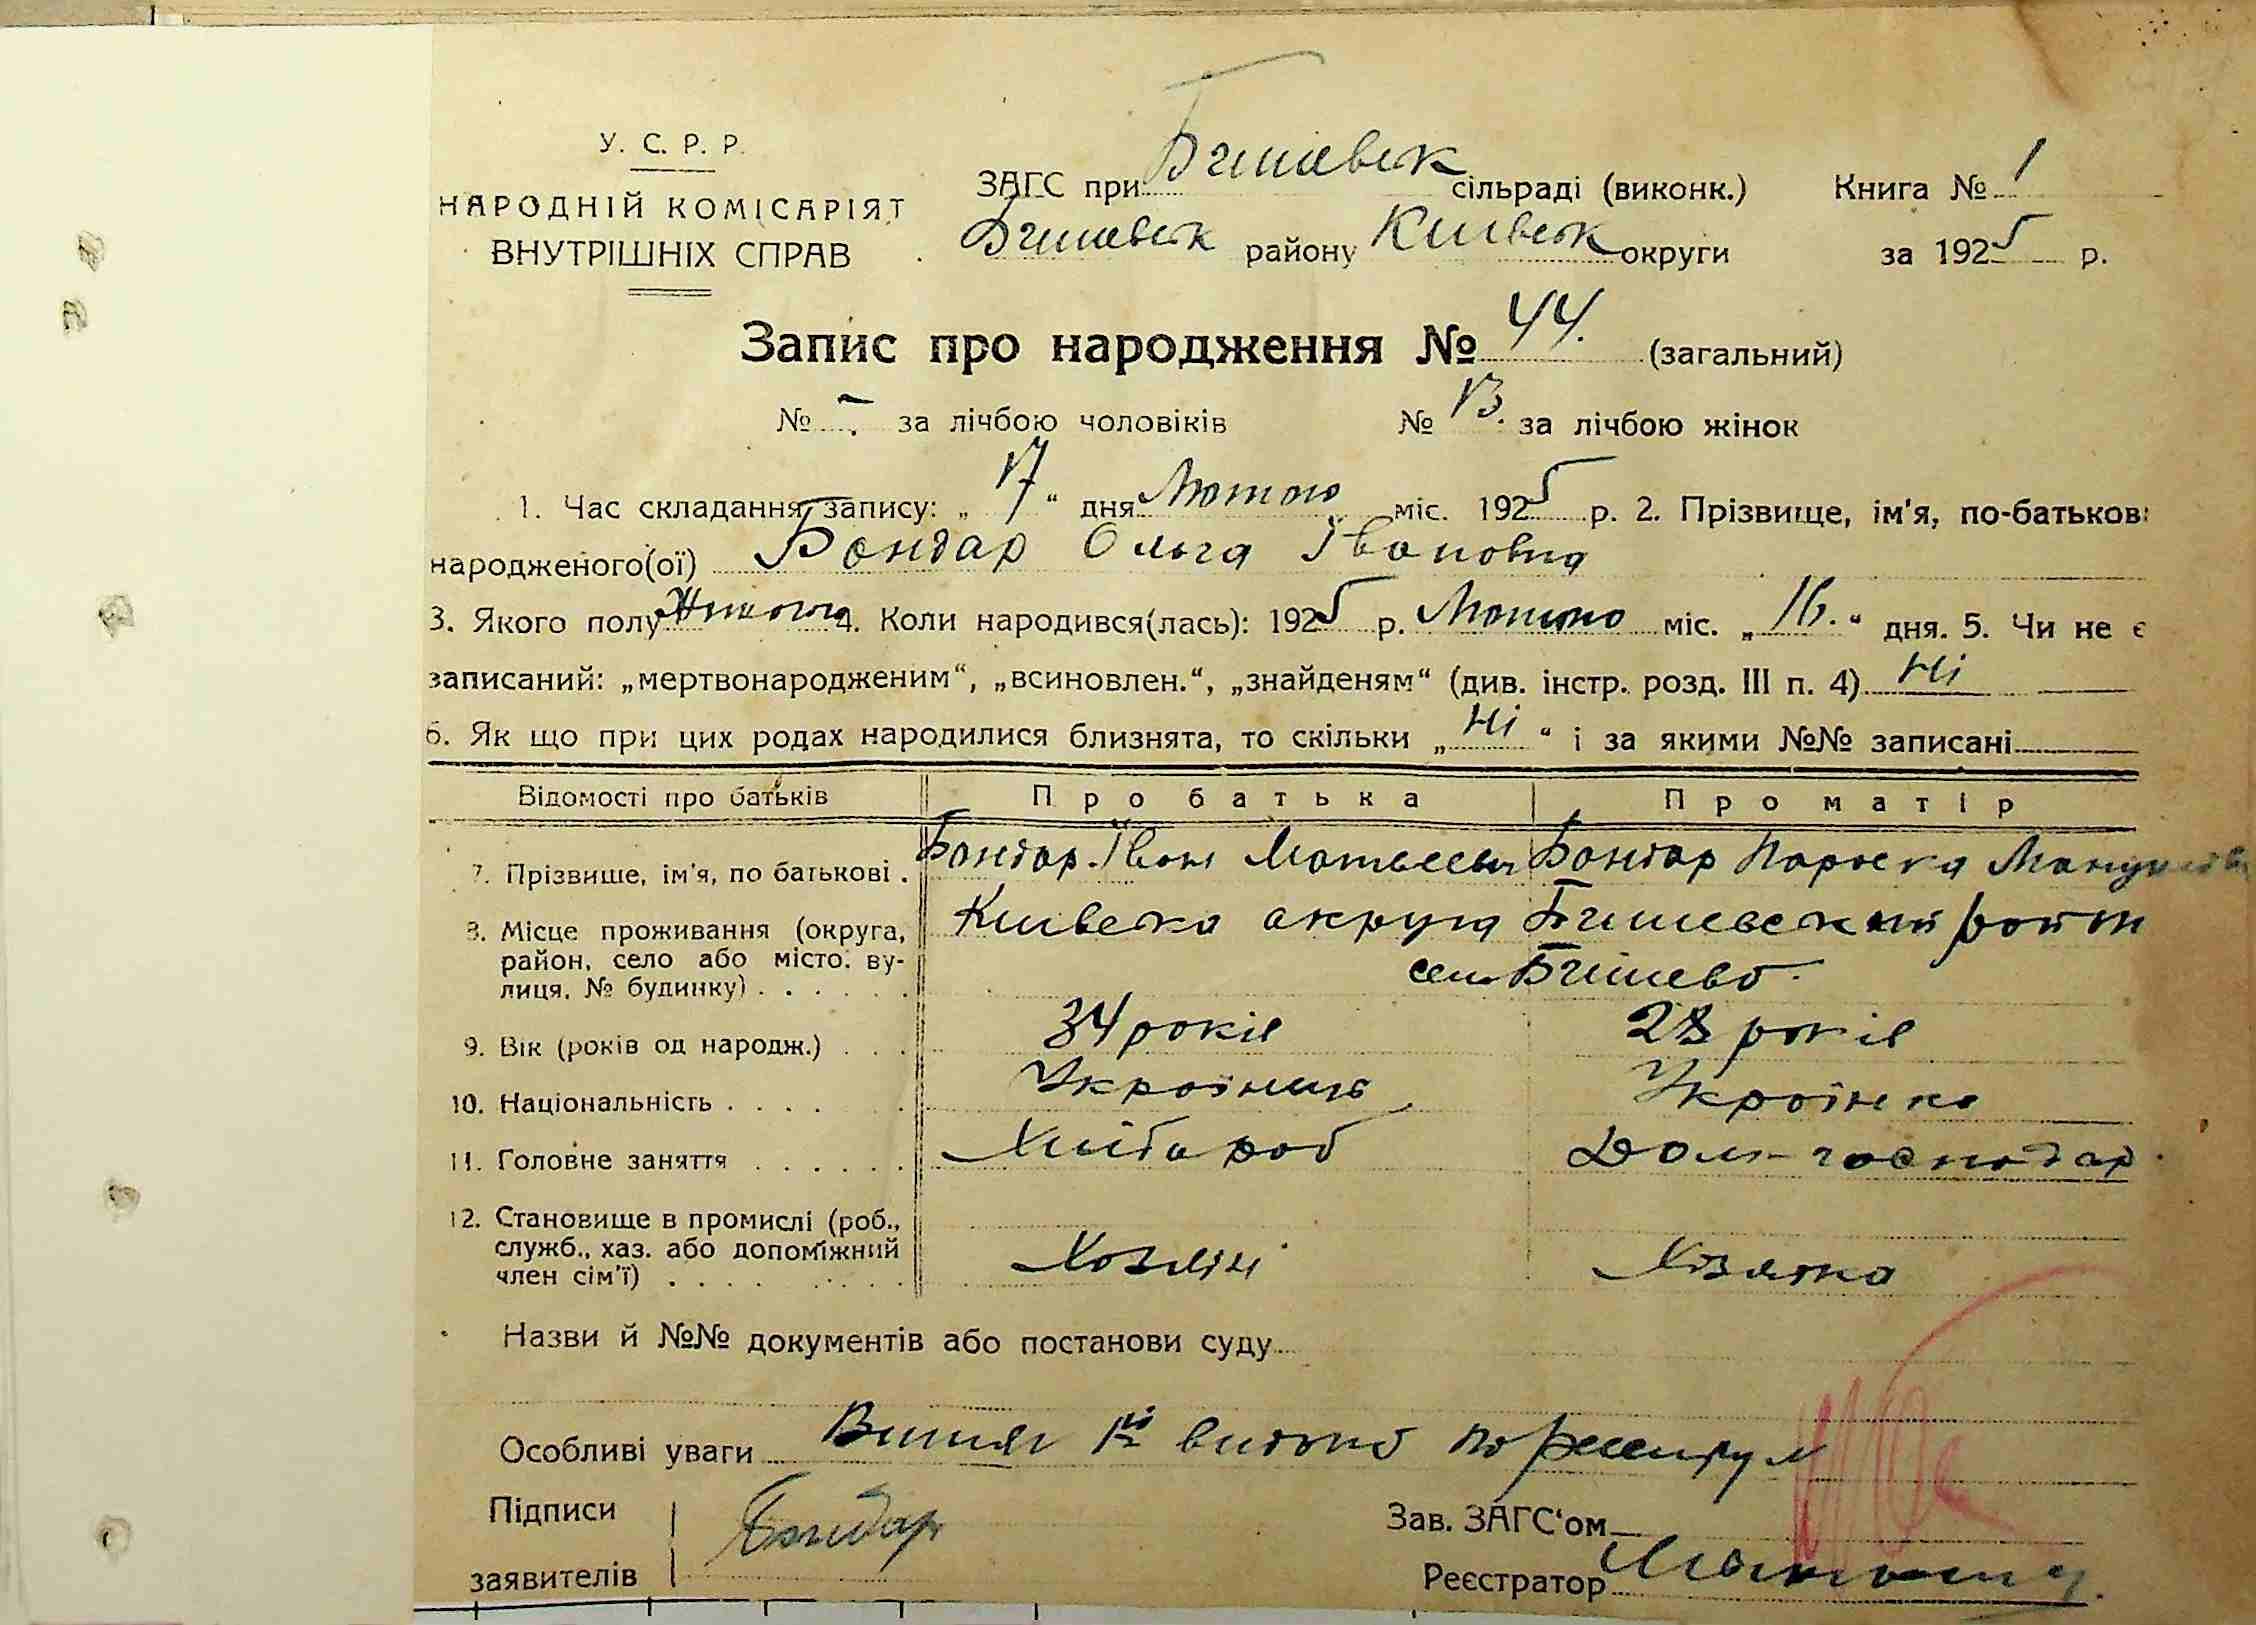 У. С. Р. Р.
НАРОДНІЙ КОМІСАРІЯТ
ВНУТРІШНІХ СПРАВ
ЗАГС при Бишевск сільраді (виконк.) Книга № 1
Бишевск району Київск округи за 1925 р.
Запис про народження № 44. (загальний)
№ - за лічбою чоловіків № 13. за лічбою жінок
1. Час складання запису: „17“ дня Лютого міс. 1925 р. 2. Прізвище, ім'я, по-батькові
народженого(ої) Бондар Ольга Івановна
3. Якого полу 4. Коли народився(лась): 1925 р. Лютого міс. „16.“ дня. 5. Чи не є
записаний: „мертвонародженим“, „всиновлен.“, „знайденям“ (див. інстр. розд. III п. 4) Ні
6. Як що при цих родах народилися близнята, то скільки „Ні“ і за якими №№ записані
Відомості про батьків Про батька Про матір
7. Прізвише, ім'я, по батькові . Бондар Іван Матвеевич Бондар Параска
8. Місце проживання (округа, район, село або місто, вулиця, № будинку) . . . . . . Київска округа Бишевский район
село Бишево.
9. Вік (років од народж.) . . . 34 років 28 років
10. Національність . . . . Українець Українка
11. Головне заняття . . . . . . Хлібороб Дом-господар.
12. Становище в промислі (роб., служб., хаз. або допоміжний член сім'ї) . . . . Хозяін Хозяйка
Назви й №№ документів або постанови суду
Особливі уваги
Підписи Бондар Зав. ЗАГС‘ом
заявителів Реєстратор